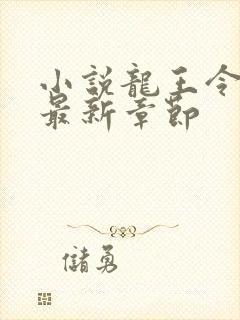 小說龍王令
最新章節
儲勇